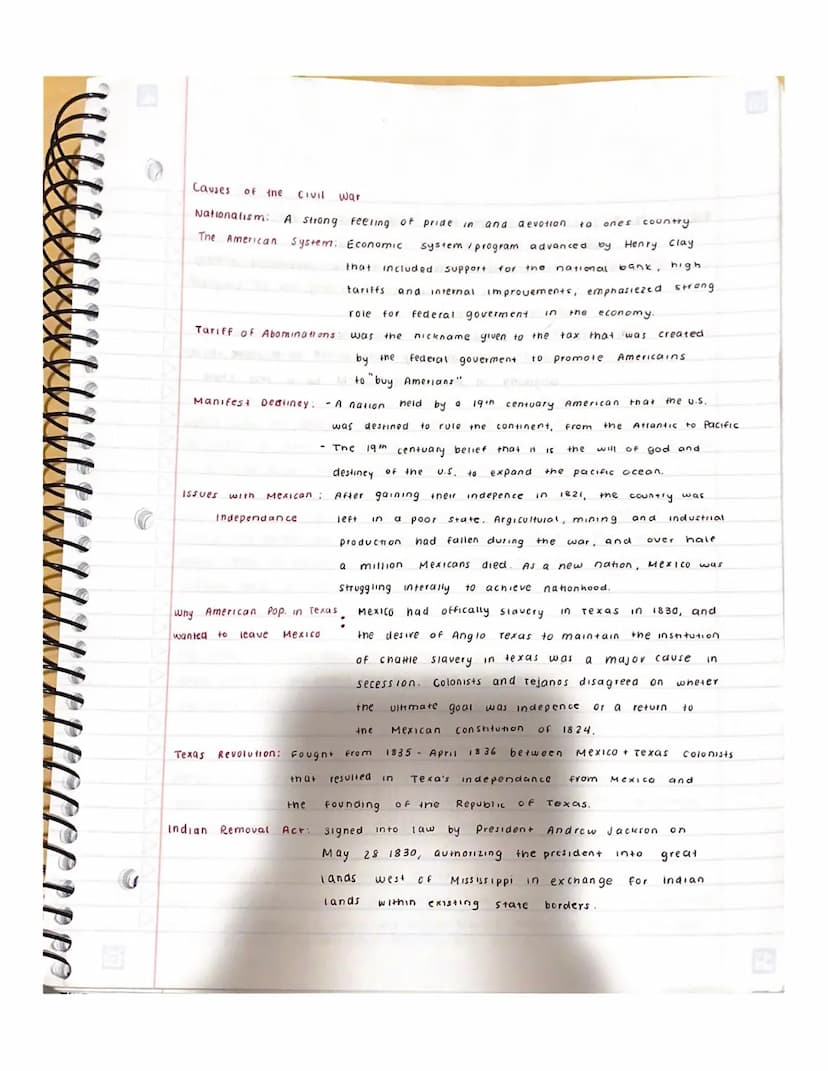 Causes of the Civil War
Nationalism: A strong feeling of pride in and devotion to ones country
The American System: Economic system/program advanced by Henry Clay
that included support for the national bank, high
tariffs and internal improvements, emphasiezed strong
role for federal goverment in the economy.
Tariff of Abominations: was the nickname given to the tax that was created
by the federal goverment to promote Americains
to "buy Amerians"
Manifest Destiney: - A nation held by a 19th centuary American that the U.S.
was destined to rule the continent, from the Atlantic to Pacific
- The 19th centuary belief that it is the will of god and
destiney of the U.S. to expand the pacific ocean.
Issues with Mexican: After gaining their indepence in 1821, the country was
Independance left in a poor state. Argicultural, mining and industrial
production had fallen during the war, and over hale
a million Mexicans died. As a new nation, Mexico was
struggling interally to achieve nationhood.
Why American Pop. in Texas: Mexico had offically slavery in Texas in 1830, and
wanted to leave Mexico the desire of Anglo Texas to maintain the institution
of chattle slavery in texas was a major cause in
secession. Colonists and tejanos disagreed on wheter
the ultimate goal was indepence or a return to
the Mexican constitution of 1824.
Texas Revolution: Fought from 1835 - April 1836 between Mexico + Texas colonists
that resulted in Texa's independance from Mexico and
the founding of the Republic of Texas.
Indian Removal Act: signed into law by President Andrew Jackson on
May 28 1830, authorizing the president into great
lands west of Mississippi in exchange for Indian
lands within existing state borders.